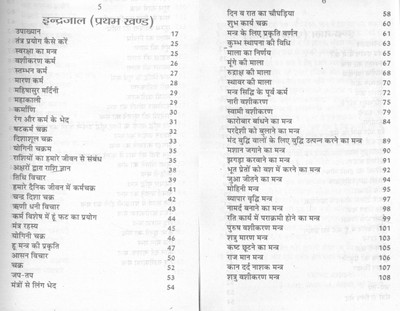 5
इन्द्रजाल (प्रथम खण्ड)
उपाख्यान 17
तंत्र प्रयोग कैसे करें 25
स्वरक्षा का मन्त्र 25
वशीकरण कर्म 25
स्तम्भन कर्म
मारण कर्म
महिषासुर मर्दिनी
महाकाली
कर्माणि
रंग और कर्म के भेद
षटकर्म चक्र
दिशाशूल चक्र
योगिनी चक्रम
राशियों का हमारे जीवन से संबंध 35
अक्षरों द्वारा राशि ज्ञान
तिथि विचार 38
हमारे दैनिक जीवन में कर्मचक्र 41
चन्द्र दिशा चक्र
ऋणी धनी विचार
कर्म विशेष में हूं फट का प्रयोग
मंत्र रहस्य
योगिनी चक्र
हू मन्त्र की प्रकृति
आसन विचार
चक्र 52
जप-तप 53
मंत्रों से लिंग भेद 54
6
दिन व रात का चौघड़िया 58
शुभ कार्य चक्र 60
मन्त्र के लिए प्रकृति वर्णन
कुम्भ स्थापना की विधि
माला का निर्णय
मूंगे की माला
रुद्राक्ष की माला
स्थावर की माला
मन्त्र सिद्धि के पूर्व कर्म 72
नारी वशीकरण 75
स्वामी वशीकरण 79
कारोबार बांधने का मन्त्र 84
परदेशी को बुलाने का मन्त्र
मंद बुद्धि वालों के लिए बुद्धि उत्पन्न करने का मन्त्र 89
मशान जगाने का मन्त्र 90
झगड़ा करवाने का मन्त्र 91
भूत प्रेतों को वश में करने का मन्त्र 92
जुआ जीतने का मन्त्र 94
मोहिनी मन्त्र 95
व्यापार वृद्धि मन्त्र 96
नामर्द बनाने का मन्त्र
रति कार्य में पराक्रमी होने का मन्त्र 99
पुरुष वशीकरण मन्त्र 101
शत्रु मारण मन्त्र 103
कष्ट छूटने का मन्त्र 105
राज मान मन्त्र 106
कान दर्द नाशक मन्त्र 107
शत्रु वशीकरण मन्त्र 108